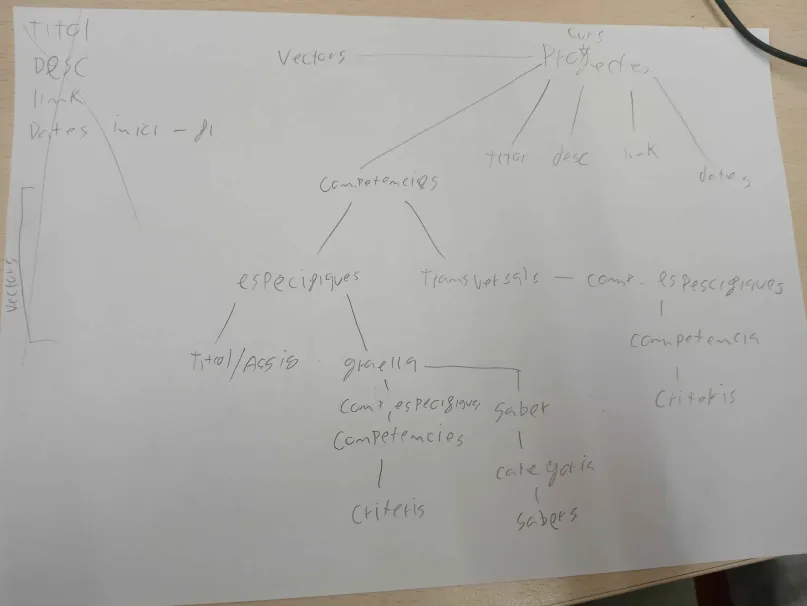 Titol
Desc
link
Dates inici - fi
Vectors
Vectors
Curs
Projectes
titol
desc
link
dates
Competencies
especifiques
transversals - comp. espescifiques
competencia
Criteris
titol/Assig
graella
Comp. especifiques
Competencies
Criteris
Saber
categoria
Sabers